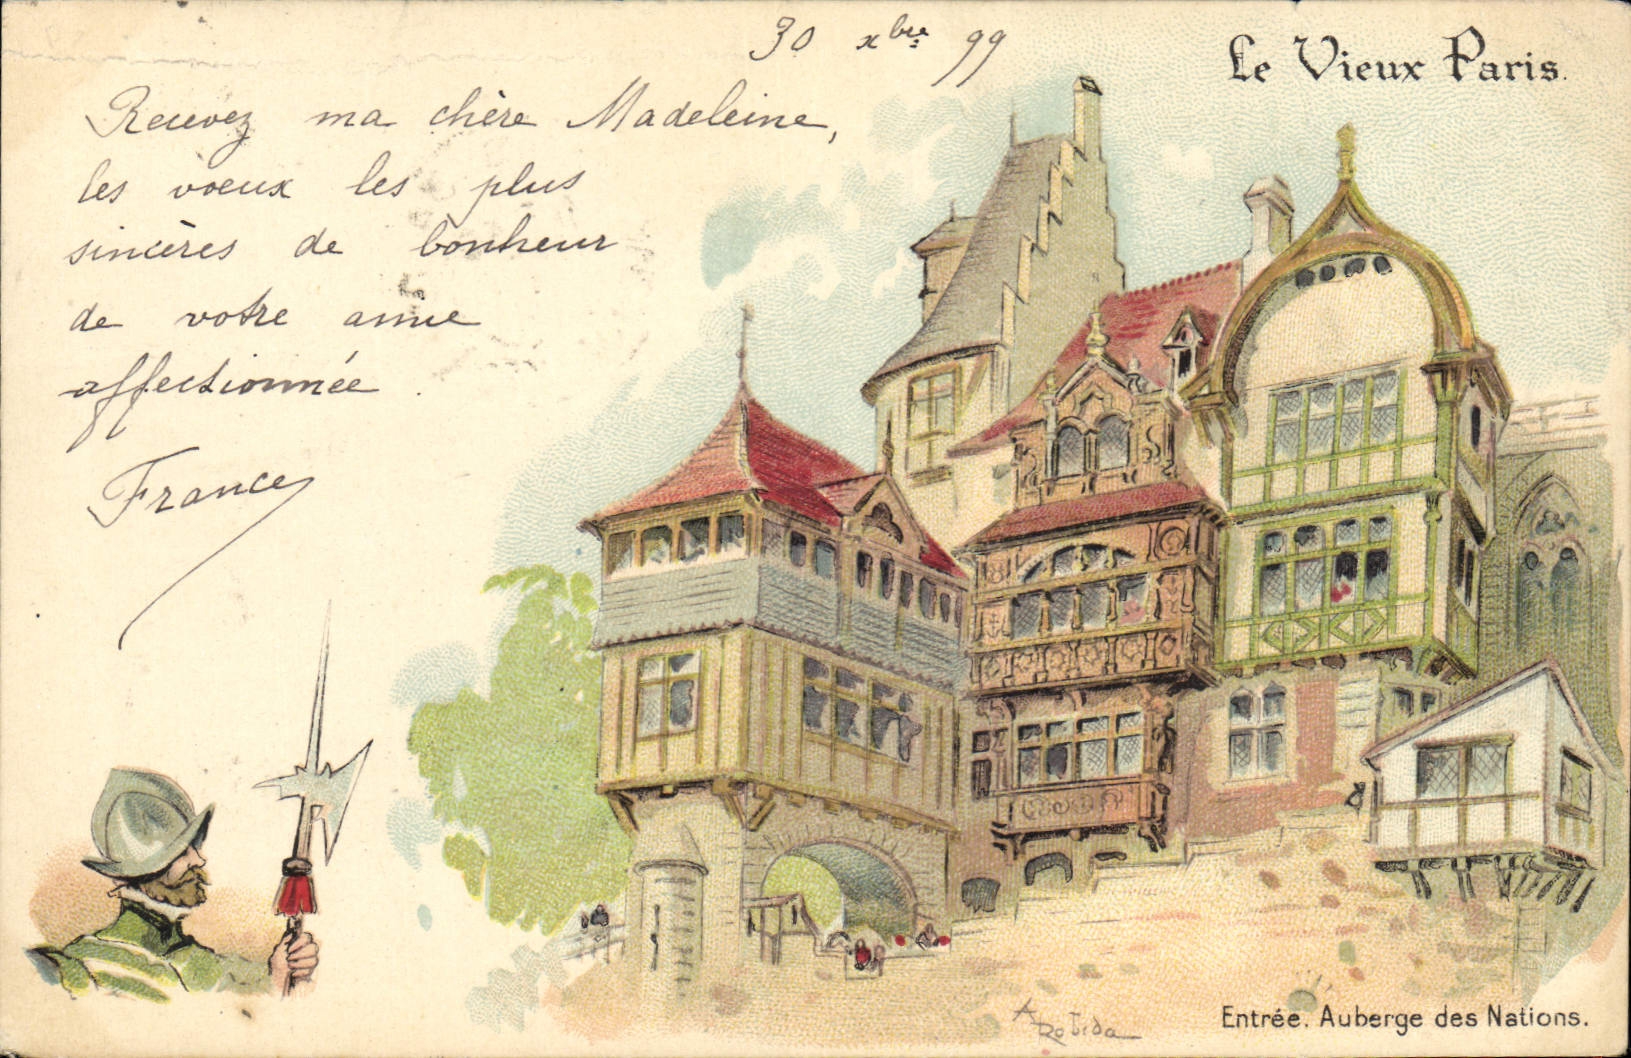 30 xbre 99
Le Vieux Paris.
Recevez ma chère Madeleine,
les voeux les plus
sincères de bonheur
de votre amie
affectionnée.
France
A Robida
Entrée. Auberge des Nations.